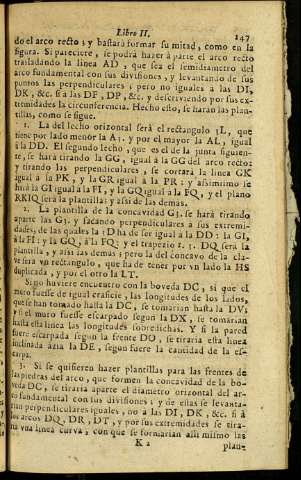 Libro II. 147
do el arco recto; y bastará formar su mitad, como en la
figura. Si pareciere, se podrá hazer à parte el arco recto
trasladando la linea AD, que sea el semidiametro del
arco fundamental con sus divisiones, y levantando de sus
puntos las perpendiculares; pero no iguales a las DI,
DK, &c. si à las DF, DP, &c. y describiendo por sus ex-
tremidades la circunferencia. Hecho esto, se harán las plan-
tillas, como se sigue.
1. La del lecho orizontal serà el rectangulo 3L, que
tiene por lado menor la A3. y por el mayor la AL, igual
à la DD. El segundo lecho, que es el de la junta siguien-
te, se hará tirando la GG, igual à la GG del arco recto:
y tirando las perpendiculares, se cortarà la linea GK
igual à la PK, y la GR igual à la PR; y assimismo se
hará la GI igual à la FI, y la GQ igual à la FQ, y el plano
RKIQ será la plantilla; y assi de las demas.
2. La plantilla de la concavidad G3. se hará tirando
aparte las G3. y sacando perpendiculares a sus extremi-
dades, de las quales la 3D ha de ser igual a la DD: la GI,
à la FI: y la GQ, à la FQ; y el trapezio 3. DQ será la
plantilla, y assi las demas; pero la del concavo de la cla-
ve será un rectangulo, que ha de tener por un lado la HS
duplicada, y por el otro la LT.
Si no huviere encuentro con la boveda DC, si que el
muro fuesse de igual craficie, las longitudes de los lados,
que se han tomado hasta la DC, se tomarian hasta la DV;
y si el muro fuesse escarpado segun la DX, se tomarian
hasta esta linea las longitudes sobredichas. Y si la pared
fuere escarpada segun la frente DO, se tiraria esta linea
inclinada àzia la DE, segun fuere la cantidad de la es-
carpa.
3. Si se quisieren hazer plantillas para las frentes de
las piedras del arco, que formen la concavidad de la bo-
veda DC, se tirarìa aparte el diametro orizontal del ar-
co fundamental con sus divisiones; y de estas se levanta-
rian perpendiculares iguales, no a las DI, DK, &c. si à
los arcos DQ, DR, DT, y por sus extremidades se tira-
ria una linea curva; con que se formarian assi mismo las
K 2 plan-